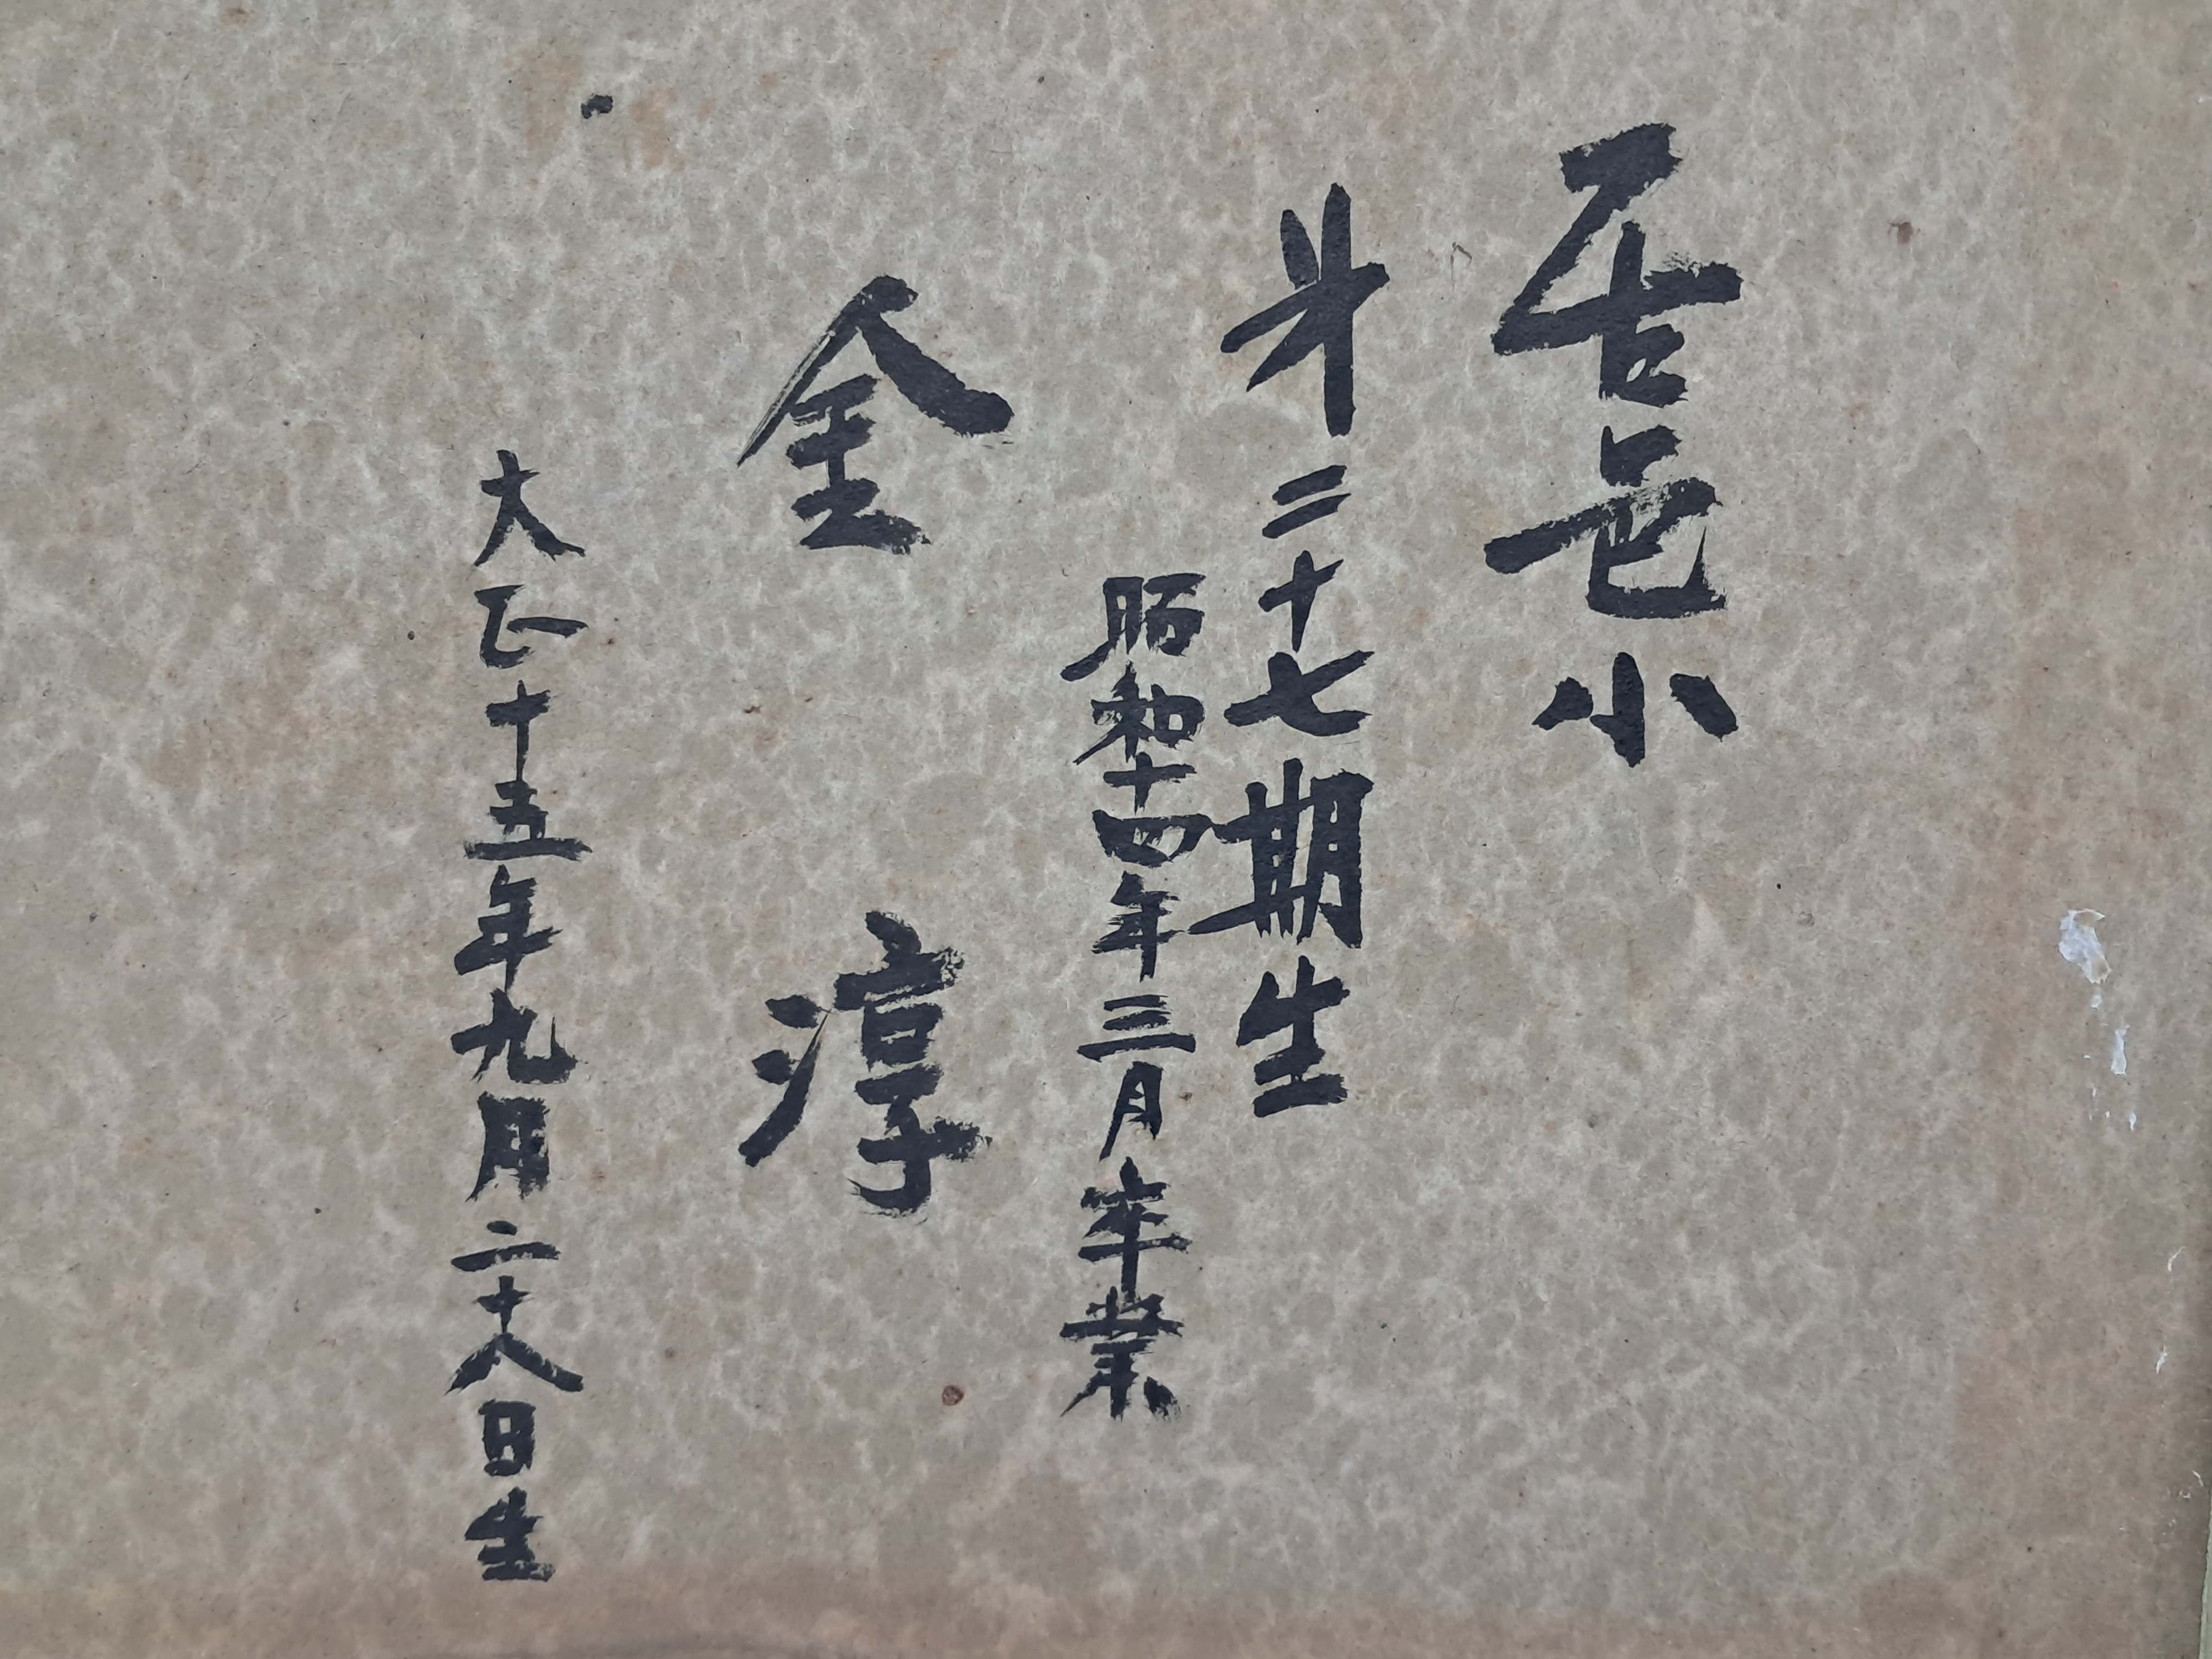 居邑小
第二十七期生
昭和十四年三月卒業
金 淳
大正十五年九月二十八日生